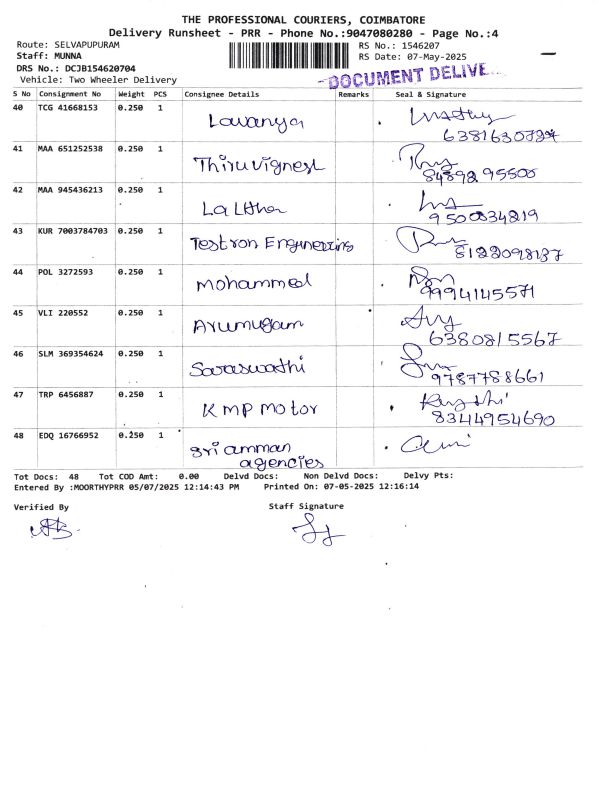 THE PROFESSIONAL COURIERS, COIMBATORE
Delivery Runsheet - PRR - Phone No.:9047080280 - Page No.:4
Route: SELVAPUPURAM RS No.: 1546207
Staff: MUNNA RS Date: 07-May-2025
DRS No.: DCJB154620704
Vehicle: Two Wheeler Delivery
DOCUMENT DELIVE
S No Consignment No Weight PCS Consignee Details Remarks Seal & Signature
40 TCG 41668153 0.250 1 Lavanya
41 MAA 651252538 0.250 1 Thiruvignesh
84892 95500
42 MAA 945436213 0.250 1
9500834219
43 KUR 7003784703 0.250 1 Testron Engineering
8122098137
44 POL 3272593 0.250 1 Mohammed
9994145571
45 VLI 220552 0.250 1 Arumugam
6380815567
46 SLM 369354624 0.250 1 Saraswathi
9787788661
47 TRP 6456887 0.250 1 KMP Motor
8344954690
48 EDQ 16766952 0.250 1 Sri amman
agencies
Tot Docs: 48 Tot COD Amt: 0.00 Delvd Docs: Non Delvd Docs: Delvy Pts:
Entered By :MOORTHYPRR 05/07/2025 12:14:43 PM Printed On: 07-05-2025 12:16:14
Verified By Staff Signature